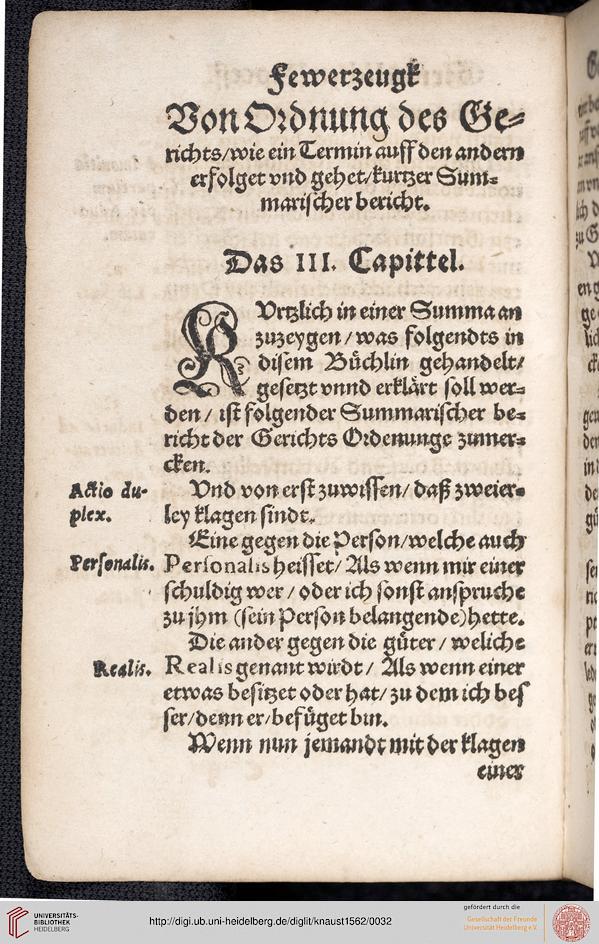 Fewerzeugk
Von Ordnung des Ge-
richts/wie ein Termin auff den andern
erfolget vnd gehet/kurtzer Sum-
marischer bericht.
Das III. Capittel.
KVrtzlich in einer Summa an
zuzeygen/was folgendts in
disem Büchlin gehandelt/
gesetzt vnnd erklärt soll wer-
den/ist folgender Summarischer be-
richt der Gerichts Ordenunge zumer-
cken.
Actio du-
plex.
Vnd von erst zuwissen/daß zweier-
ley klagen sindt.
Eine gegen die Person/welche auch
Personalis.
Personalis heisset/Als wenn mir einer
schuldig wer/oder ich sonst anspruche
zu jhm (sein Person belangende) hette.
Die ander gegen die güter/weliche
Realis.
Realis genant wirdt/Als wenn einer
etwas besitzet oder hat/zu dem ich bes
ser/denn er/befüget bin.
Wenn nun jemandt mit der klagen
einer
UNIVERSITÄTS-
BIBLIOTHEK
HEIDELBERG
http://digi.ub.uni-heidelberg.de/diglit/knaust1562/0032
gefördert durch die
Gesellschaft der Freunde
Universität Heidelberg e.V.